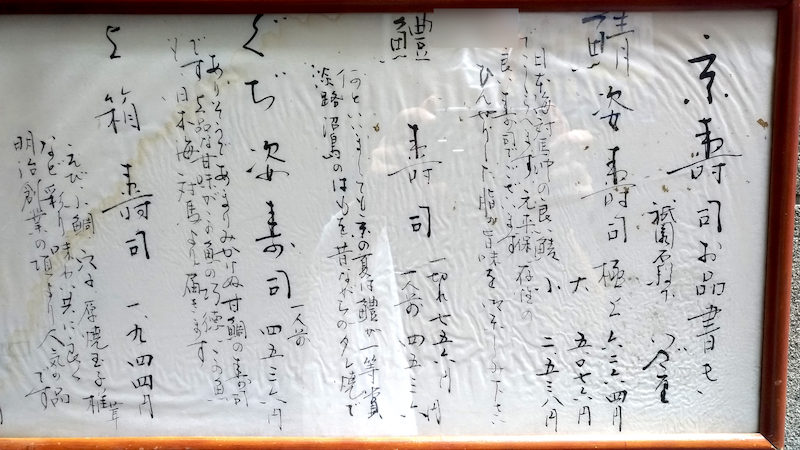 京寿司お品書き
祇園石段下 いづ重
鯖姿寿司 極上 六二六四円
大 五〇七六円
小 二五三八円
日本海対馬沖の良い鯖
でこしらへます
良い寿司でございます
ひんやりした脂の旨味をお楽しみ下さい
鱧寿司 一切れ七五六円
一人前 四五三六円
何といいましても京の夏は鱧が一等賞
淡路沼島のはもを昔ながらのタレ焼で
ぐぢ姿寿司 四五三六円
一人前
ありそうであまりみかけぬ甘鯛の寿司
です 上品な甘味がお魚の巧徳 この魚
も日本海 対馬より届きます
上箱寿司 一九四四円
えび 小鯛 穴子 厚焼玉子 椎茸
など 彩り味わい共に良く
明治創業の頃より人気の品です